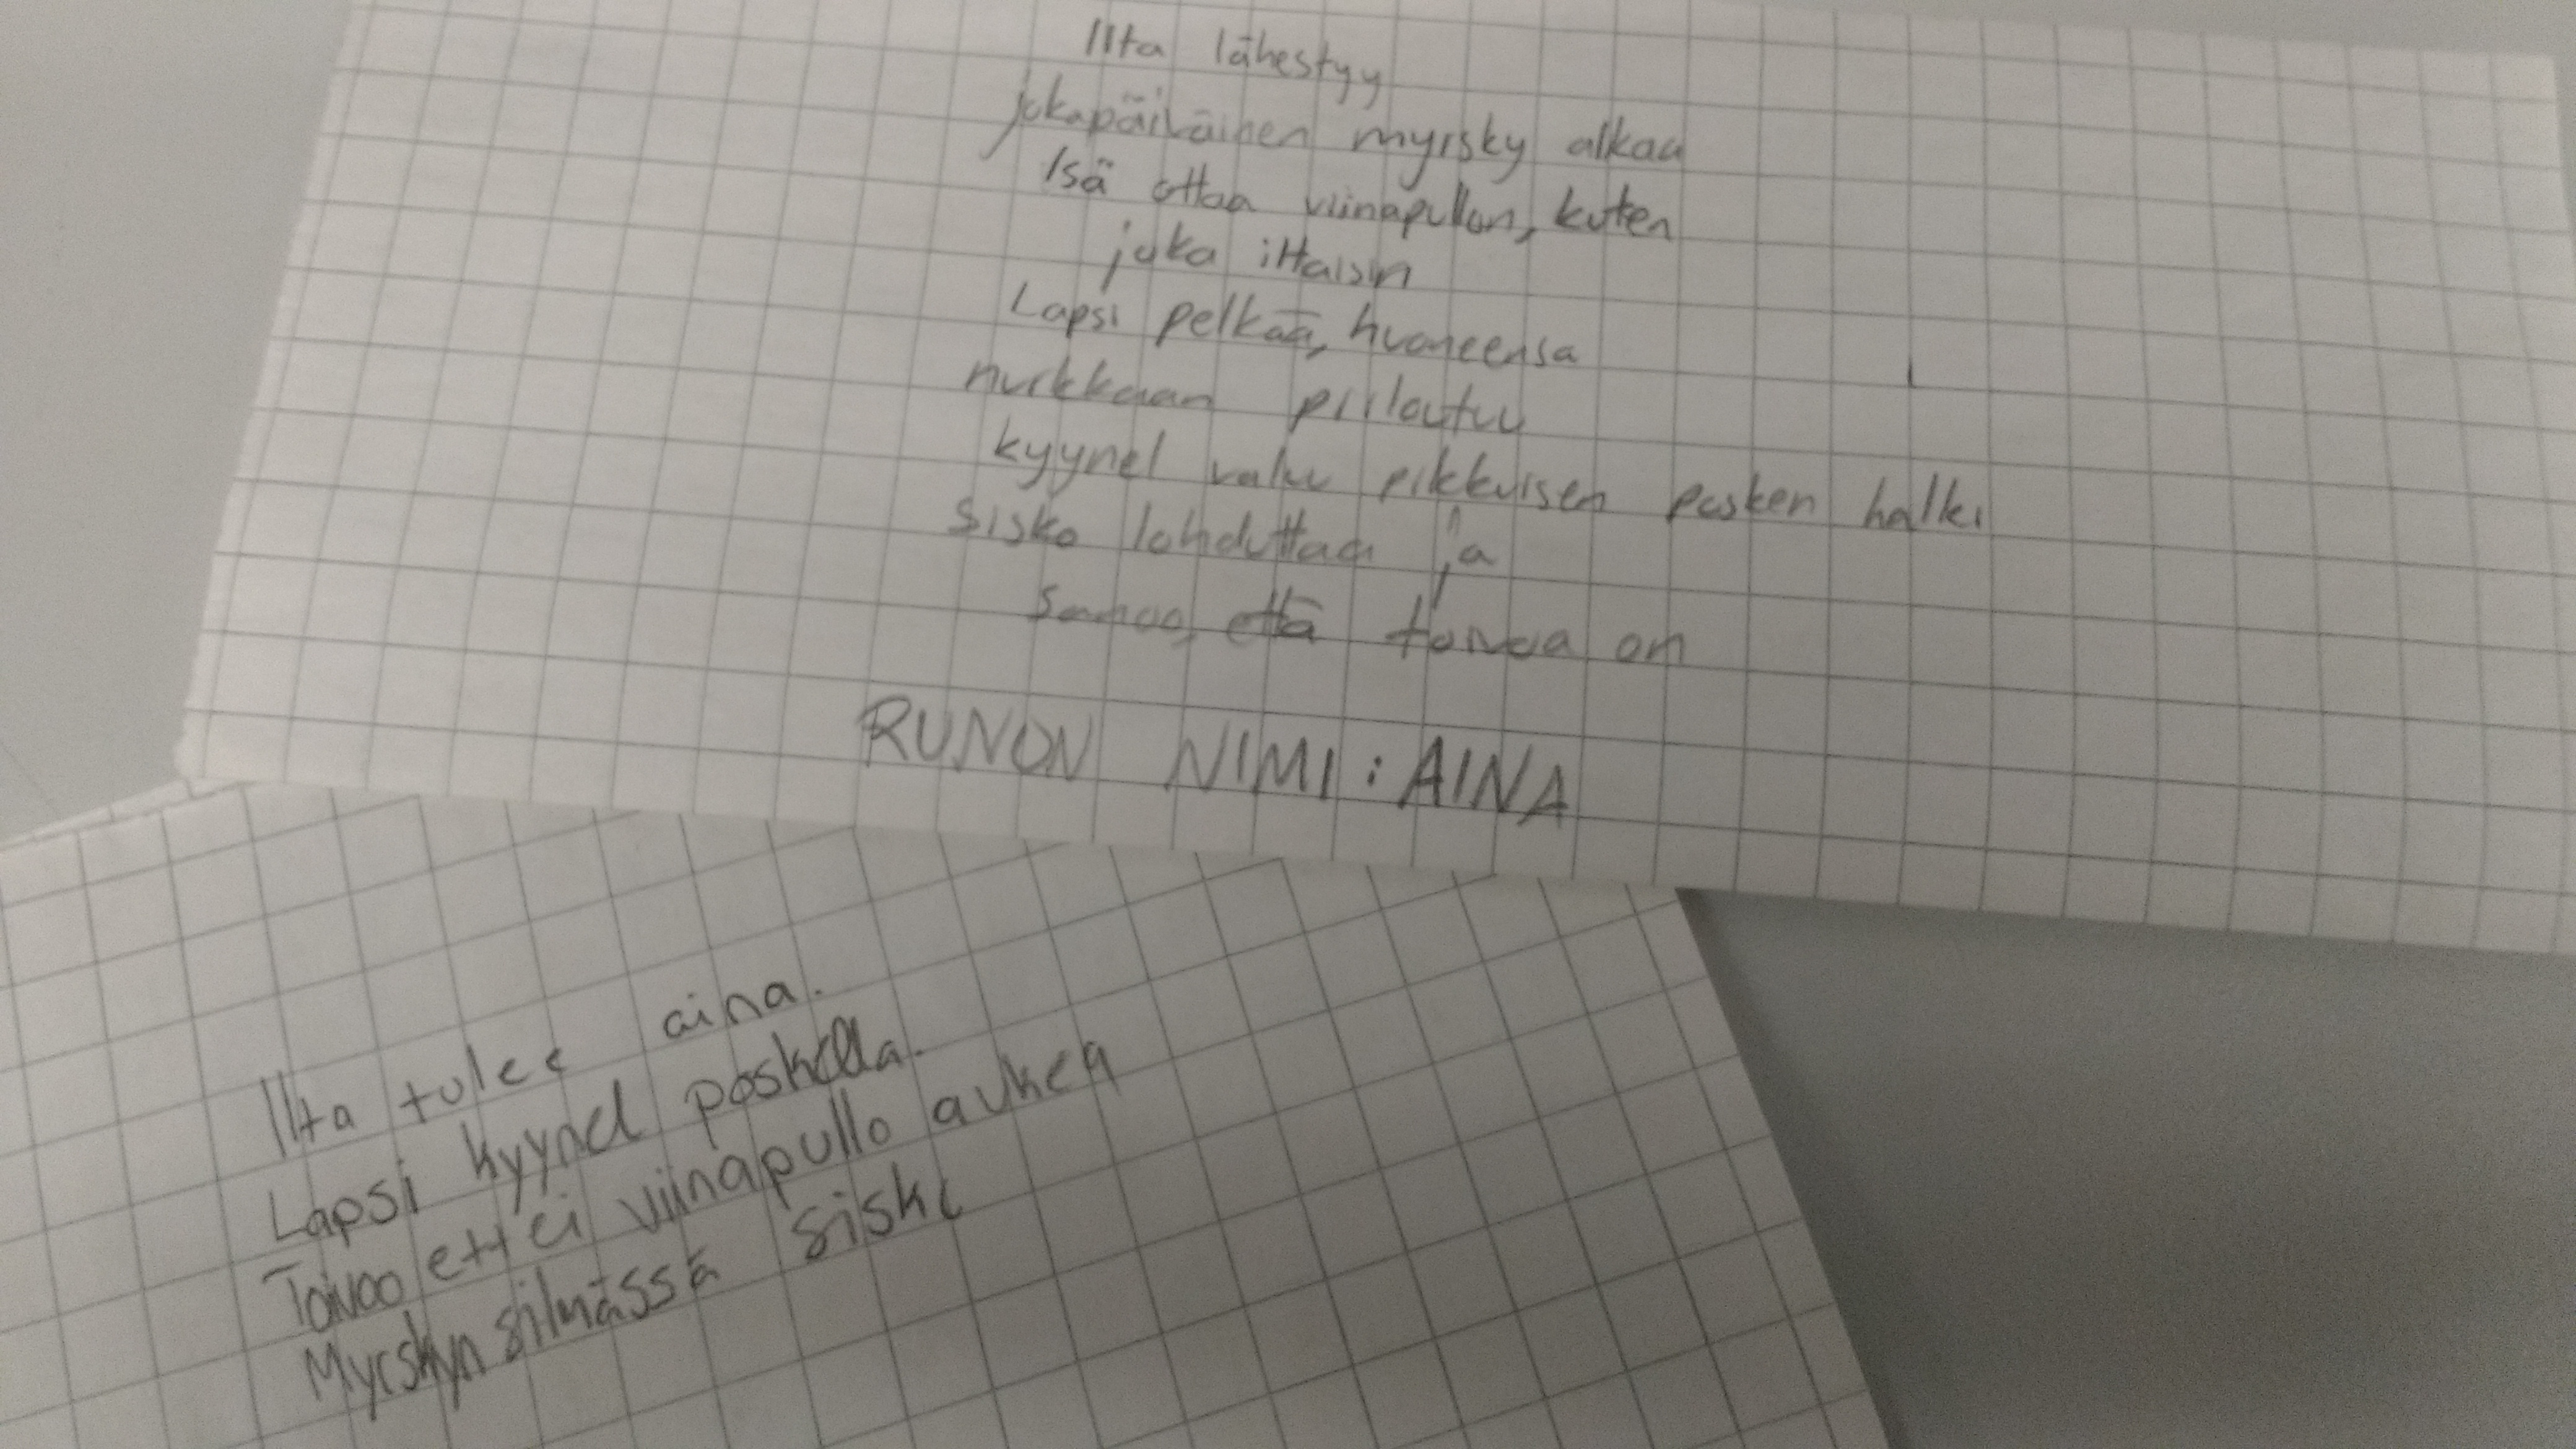 Ilta lähestyy
jokapäiväinen myrsky alkaa
Isä ottaa viinapullon, kuten
joka iltaisin
Lapsi pelkää, huoneensa
nurkkaan piiloutuu
kyynel valuu pikkuisen posken halki
Sisko lohduttaa ja
Sanoo, että toivoa on
RUNON NIMI: AINA
Ilta tulee aina.
Lapsi kyynel poskella.
Toivoo ettei viinapullo aukea
Myrskyn silmässä sisko